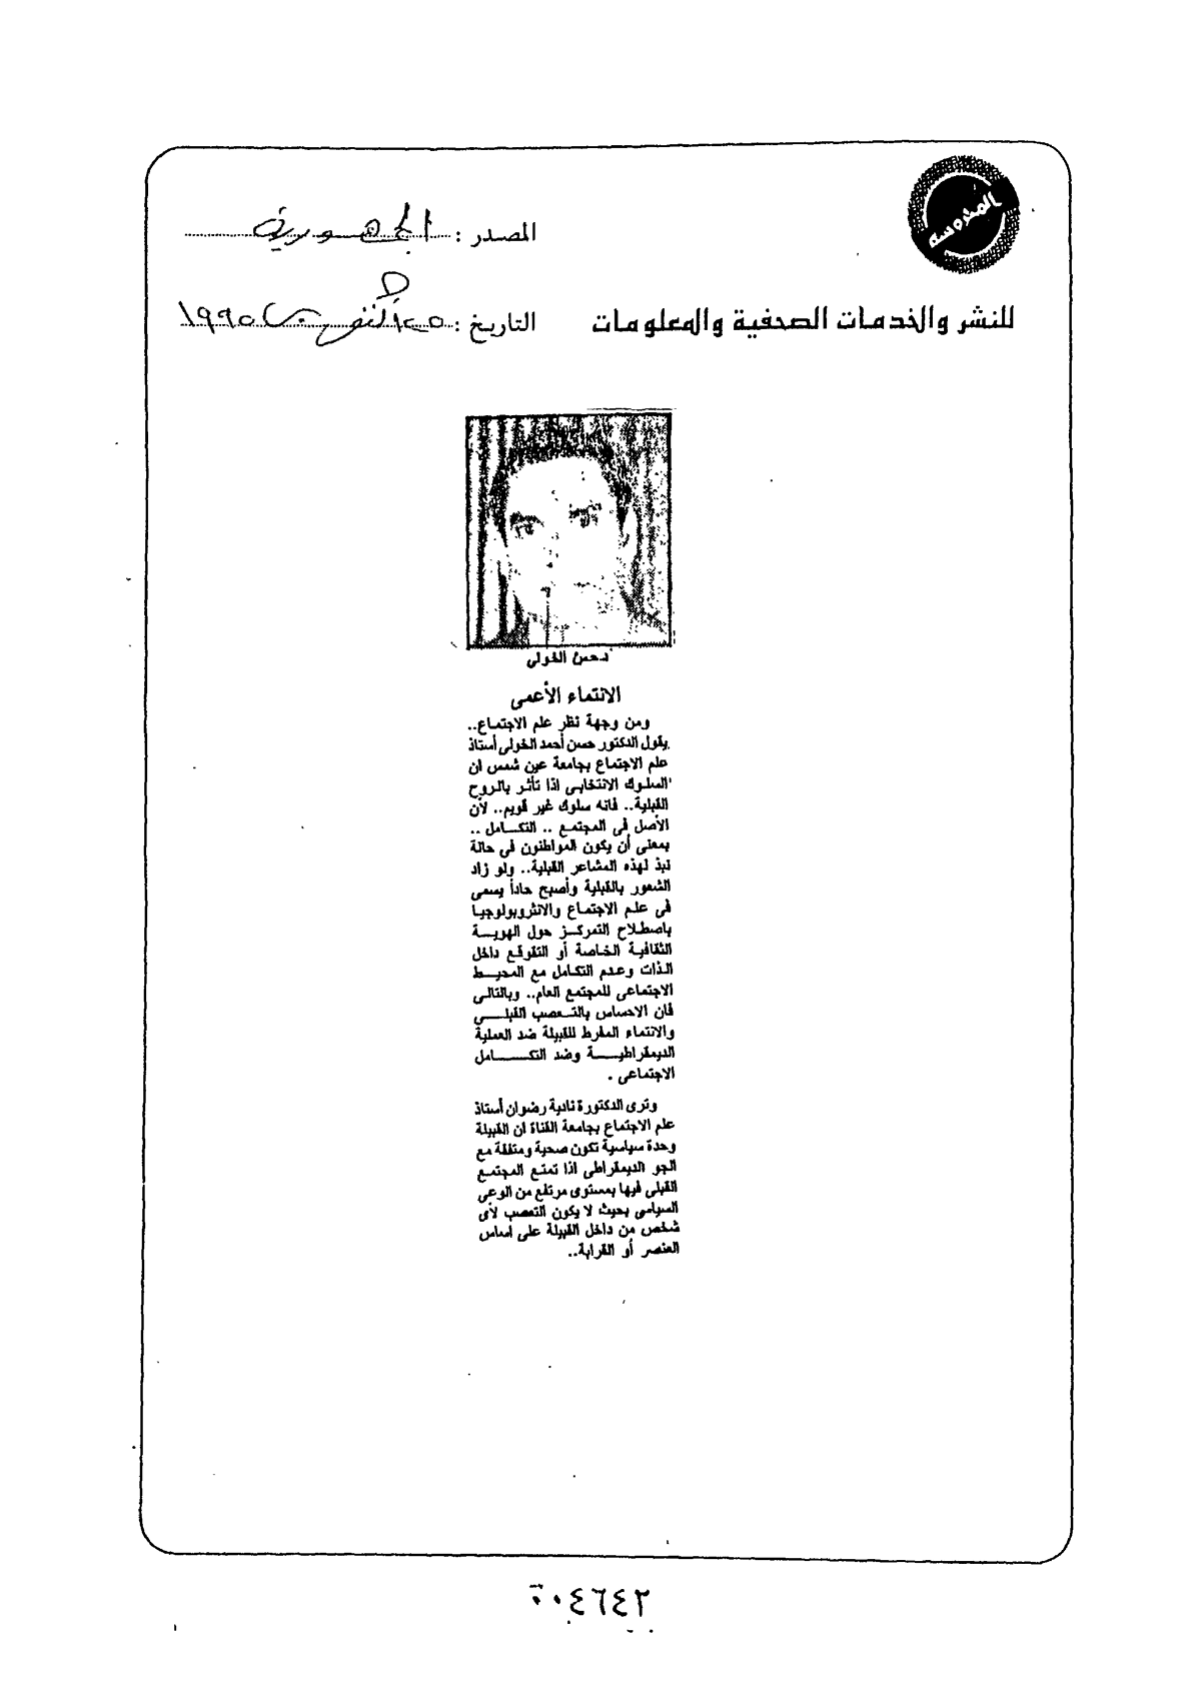 المحروسة
المصدر : الجمهورية
للنشر والخدمات الصحفية والمعلومات
التاريخ : ٢٥ أكتوبر ١٩٩٥
د. حسن الخولى
الانتماء الأعمى
ومن وجهة نظر علم الاجتماع..
يقول الدكتور حسن أحمد الخولى أستاذ
علم الاجتماع بجامعة عين شمس ان
السلوك الانتخابى اذا تأثر بالروح
القبلية.. فانه سلوك غير قويم.. لأن
الأصل فى المجتمع .. التكامل ..
بمعنى أن يكون المواطنون فى حالة
نبذ لهذه المشاعر القبلية.. ولو زاد
الشعور بالقبلية وأصبح حاداً يسمى
فى علم الاجتماع والانثروبولوجيا
باصطلاح التمركز حول الهوية
الثقافية الخاصة أو التقوقع داخل
الذات وعدم التكامل مع المحيط
الاجتماعى للمجتمع العام.. وبالتالى
فان الاحساس بالتعصب القبلى
والانتماء المفرط للقبيلة ضد العملية
الديمقراطية وضد التكامل
الاجتماعى .
وترى الدكتورة نادية رضوان أستاذ
علم الاجتماع بجامعة القناة ان القبيلة
وحدة سياسية تكون صحية ومتفقة مع
الجو الديمقراطى اذا تمتع المجتمع
القبلى فيها بمستوى مرتفع من الوعى
السياسى بحيث لا يكون التعصب لأى
شخص من داخل القبيلة على اساس
العنصر أو القرابة..